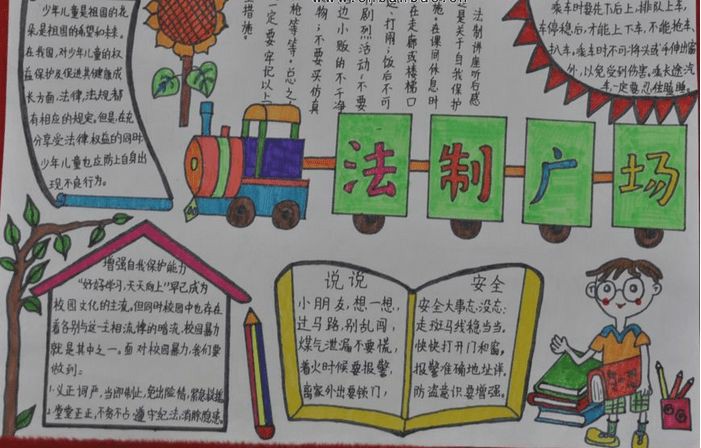 少年儿童是祖国的花
朵是祖国的希望和未来。
在我国,对少年儿童的权
益保护及促进其健康成
长方面,法律,法规都
有相应的规定,但是,在充
分享受法律权益的同时
少年儿童也应防上自身出
现不良行为。
法制讲座听后感
是关于自我保护
施。在课间休息时
在走廊或楼梯口
打闹;饭后不可
剧烈活动;不要
边小贩的不干净
物;不要买仿真
枪等等。总之
一定要牢记以上
措施。
乘车时要先下后上,排队上车,
车停稳后,才能上下车,不能抢车、
扒车,乘车时不可将头或手伸出窗
外,以免受到伤害。乘长途汽
车,一定要忍住瞌睡。
法制广场
增强自我保护能力
“好好学习,天天向上”早已成为
校园文化的主流,但同时校园中也存在
着各别与这一主相流悖的暗流。校园暴力
就是其中之一。面对校园暴力,我们要
做到:
1.义正词严,当即制止,免出险情,紧急救援
2.堂堂正正,不贪不占,遵守纪法,消除隐患。
说说
小朋友,想一想,
过马路,别乱闯,
煤气泄漏不要慌,
着火时候要报警,
离家外出要锁门,
安全
安全大事忘没忘:
走斑马线稳当当。
快快打开门和窗。
报警准确地址详。
防盗意识要增强。